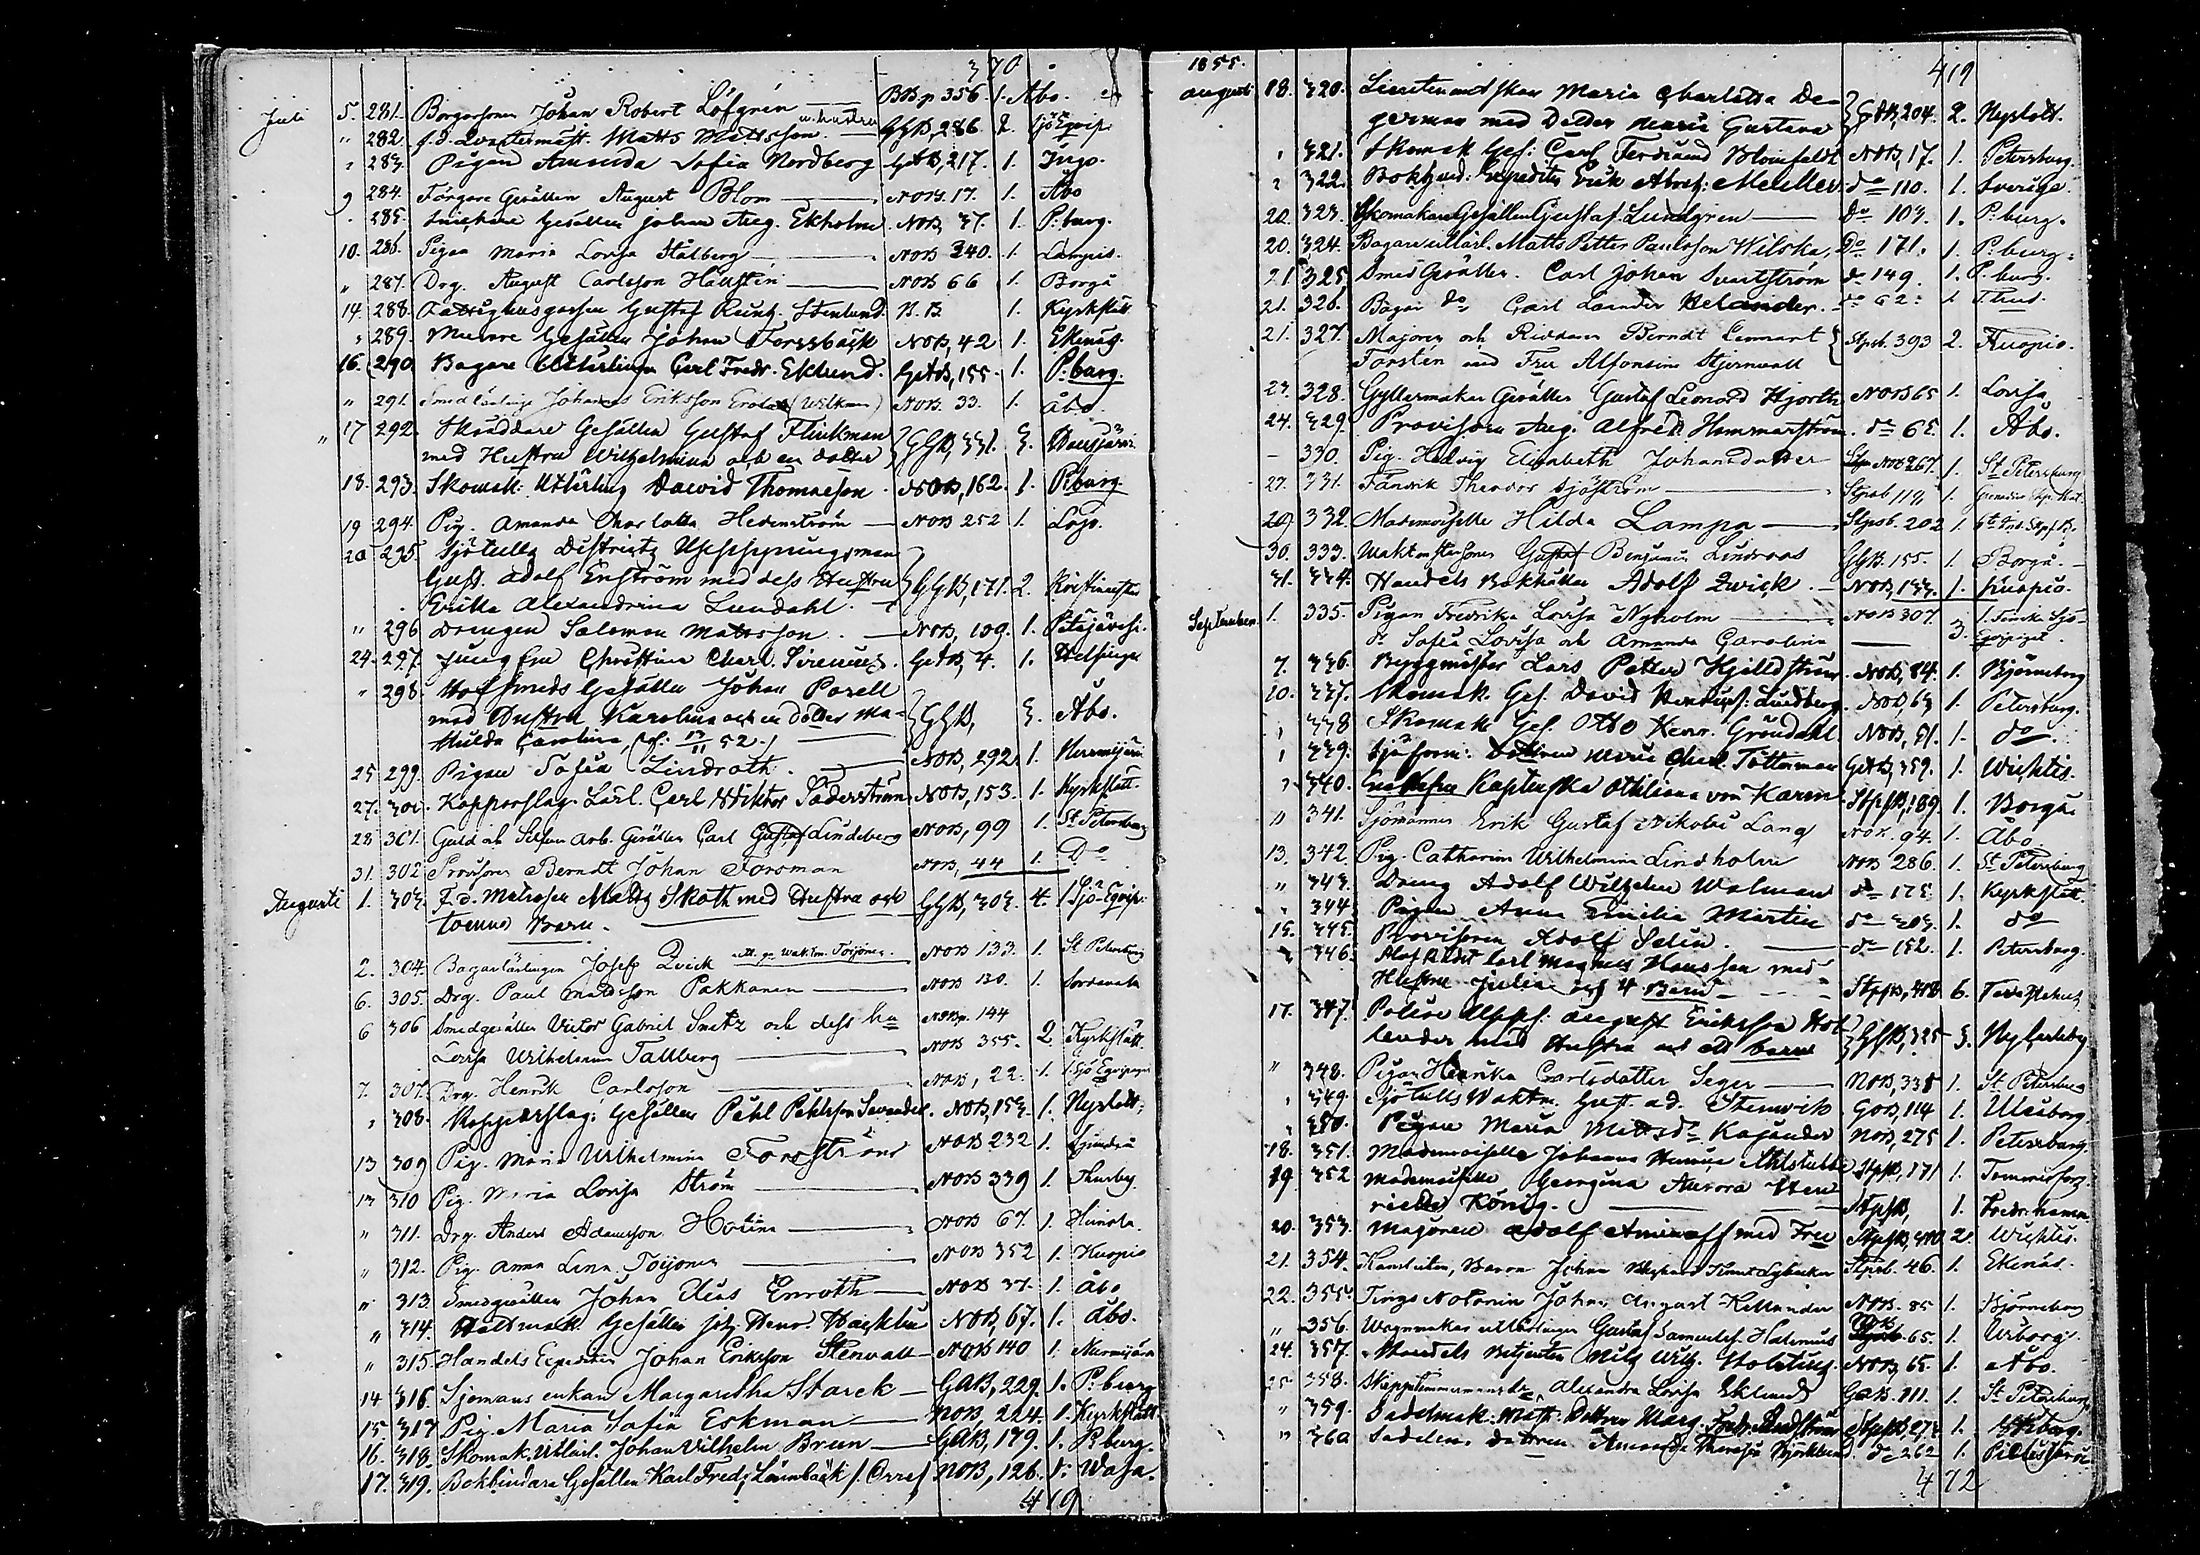 370
Juli 5. 281. Borgaresonen Johan Robert Löfgren — BB p 356 1. Åbo.
" 282. f.d. Qvartermäst. Matts Mattsson m. hustru GGB, 286. 2. Sjö Eqvip.
" 283. Pigan Amanda Sofia Nordberg GAB, 217. 1. Ingo.
9 284. Färgare Gesällen August Blom — NOB. 17. 1. Åbo
" 285. Snickare Gesällen Johan Aug. Ekholm NOB, 37. 1. P:burg.
10. 286. Pigan Maria Lovisa Stålberg — NOB 240. 1. Lampis.
" 287. Drg. August Carlsson Hallstén — NOB 66 1. Borgå
14. 288. Fattighusgossen Gustaf Reinh. Stenlund N. B 1. Kyrkslätt
" 289. Murare Gesällen Johan Forssbäck NOB, 42 1. Ekenäs.
16. 290. Bagare Utlärlingen Carl Fredr. Eklund. GAB, 155. 1. P:burg.
" 291. Smedlärlinge Johannes Eriksson (Wilkman) NOB. 33. 1. Åbo.
" 17 292. Skräddare Gesällen Gustaf Flinkman
med Hustru Wilhelmina och en dotter GGB, 331. 3. Hausjärvi
18. 293. Skomak. Utlärling David Thomasson. NOB, 162. 1. P:burg.
19 294. Pig. Amanda Charlotta Hedenström — NOB 252 1. Lojo.
20 295. Sjötulls Distrikts Uppsyningsman
Gust. Adolf Enström med dess Hustru
Erika Alexandrina Lundahl. GGB, 171. 2. Kristinestad
" 296 Drengen Salomon Matsson. — NOB, 109. 1. Petäjävesi.
24. 297. Jungfru Christina Charl. Sirenius. GAB, 4. 1. Helsinge
" 298. Hofsmeds Gesällen Johan Porell
med Hustru Karolina och en dotter Ma-
thilda Carolina, f. 52. GGB, 3. Åbo.
25 299. Pigan Sofia Lindroth. — NOB, 292. 1. Nurmijärvi
27. 300. Kopparslag. Lärl. Carl Wiktor Söderström NOB, 153. 1. Kyrkslätt.
28 301. Guld och Silfver Arb. Gesällen Carl Gustaf Lindeberg NOB, 99 1. St Petersburg
31. 302 Provisorn Berndt Johan Forsman NOB, 44 1. Do
Augusti 1. 303. F.d. Matrosen Matts Skath med Hustru och
tvenne Barn. — GGB, 303. 4. 1 Sjö-Eqvip:
2. 304. Bagarlärlingen Josef Qvick NOB 133. 1. St Petersburg
6. 305. Drg. Paul Matsson Pakkanen — NOB 130. 1. Sordavala
6 306 Smedgesällen Victor Gabriel Smetz och dess hu NOB p. 144
Lovisa Wilhelmina Tallberg — NOB 355. 2 Kyrkslätt
7. 307. Drg. Henrik Carlsson — NOB, 22. 1. 1. Sjö Eqvipaget
" 308. Kopparslag: Gesällen Pehl Pehlsson Savander. NOB, 153. 1. Nyslott:
13 309 Pig. Maria Wilhelmina Forsström NOB 232 1. Sjundeå
13 310 Pig. Maria Lovisa Ström — NOB 339 1. Thusby
" 311. Drg. Anders Adamsson — NOB 67. 1.
" 312. Pig. Anna Lena Toijonen — NOB 352 1. Kuopio
" 313. Smedgesällen Johan Elias Enroth — NOB 37. 1. Åbo
" 314. Hattmak. Gesällen Joh. Henr. NOB, 67. 1. Åbo.
" 315. Handels Expediten Johan Eriksson Stenvall — NOB 140 1. Nurmijärvi
14 316. Sjömans enkan Margaretha Starck — GAB, 229. 1. P:burg
15. 317 Pig. Maria Sofia Eskman — NOB, 224. 1. Kyrkslätt
16. 318. Skomak. Utlärl. Johan Vilhelm Brun — GAB, 179. 1. P:burg.
17. 319. Bokbindare Gesällen Karl Fredr. NOB, 126. 1. Wasa.
419
1855. 419
Augusti 18. 320. Lieutenantskan Maria Charlotta De-
german med Dotter Maria Gustava GAB, 204. 2. Nyslott.
" 321. Skomak Ges: Carl Ferdinand Blomfeldt NOB, 17. 1. Petersburg.
" 322. Bokhand: Expedit Erik Abrah: Meller do 110. 1. Sverige.
20. 323. Skomakare Gesällen Gustaf Lundgren — do 103. 1. P:burg.
20. 324. Bagare utlärl. Matts Petter Paulsson Wilska, Do 171. 1. P:burg.
21. 325. Smeds Gesällen. Carl Johan do 149. 1. P:burg.
21. 326. Bagar do Carl Leander Helander. do 62. 1
21. 327. Majoren och Riddaren Berndt Lennart
Torsten med Fru Alfonsine Stjernvall Stpsb. 393 2. Kuopio.
23. 328. Gyllermakar Gesällen Gustaf Leonard Hjorth NOB 65 1. Lovisa
24. 329. Provisorn Aug. Alfred Hammarström. do 65. 1. Åbo.
– 330. Pig. Hedvig Elisabeth Johansdotter NOB 267. 1. St Petersburg
27. 331. Fänrik Theodor Sjöström — Stpsb 119, 1.
29. 332. Mademoiselle Hilda Lampa — Stpsb. 202 1.
30. 333. Waktm. Sonen Gustaf Benjamin Lindroos GGB. 155. 1. Borgå.
31. 334. Handels Bokhållar Adolf Zwick. — NOB, 133. 1. Kuopio.
September 1. 335. Pigan Fredrika Lovisa Nyholm — NOB 307. 1. Finska Sjö-
do Sofia Lovisa och Amanda Carolina — 3. Eqvipaget.
7. 336. Byggmäster Lars Petter Kjellström. NOB, 84. 1. Björneborg
10. 337. Skomak. Ges. David Lindberg. NOB, 63 1. Petersburg.
" 338 Skomak. Ges. Otto Henr. Gröndahl. NOB, 51. 1. do.
" 339. Sjöform: Dottren Maria Charl. Tötterman GAB, 359. 1. Wichtis.
" 340. Enkefru Kaptenska Otiliana von Karm Stpsb, 189. 1. Borgå
" 341. Sjömannen Erik Gustaf Nikolai Lang NOB. 94. 1. Åbo
13. 342. Pig. Catharina Wilhelmina Lindholm NOB 286. 1. St Petersburg
" 343. Dreng Adolf Wilhelm Walman do 175. 1. Kyrkslätt.
" 344. Pigan Anna Emilia Martin do 303. 1. do
15. 345. Provisorn Adolf Selin. — do 152. 1. Petersburg.
" 346. Carl Magnus Hansson med
Hustru Julia och 4 Barn — Stpsb, 6. Tavastehus
17. 347. Police Upps. August Eriksson Hol-
lender med Hustru och ett barn GGB, 325 3. Nykarleby
" 348. Pigan Henrika Carlsdotter Seger — NOB, 335 1. St Petersburg
" 349. Sjötulls Waktm. Gust. Ad. Stenwik GOB, 114 1. Uleåborg.
" 350. Pigan Maria Matsdr Kajander NOB, 275 1. Petersburg.
18. 351. Mademoiselle Johanna Stpsb, 171 1. Tammerfors.
19. 352 Mademoiselle Georgina Aurora Hen-
riette König. — Stpsb, 1. Fredr:hamn
20. 353. Majoren Adolf Aminoff med Fru Stpsb, 2. Wichtis.
21. 354. Baron Johan Stpsb. 46. 1. Ekenäs.
22. 355. Tings Notarien Johan August Kellander NOB. 85 1. Björneborg
" 356. Wagnmakar utlärlingen Gustaf Samuelsf. NOB 65. 1. Wiborg.
24. 357. Handels Betjenten Nils Wilh. NOB, 65. 1. Åbo.
25 358. Skeppstimmermans do Alexandra Lovisa Eklund GAB. 111. 1. St Petersburg
" 359. Sadelmak: Mäst: Dottren Marg. Stpsb, 1.
" 360 Sadelm. dottren. Amanda Theresa Björklund. do 262 1.
472